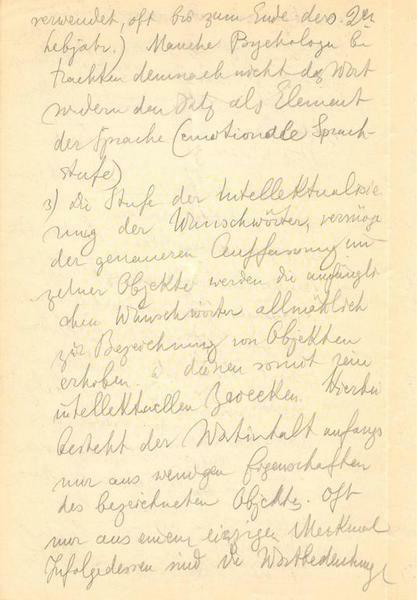 verwendet, oft bis zum Ende des 2ten
Lebjahr.) Manche Psychologen be
trachten demnach nicht das Wort
sondern den Satz als Element
der Sprache (emotionale Sprach-
stufe)
3) Die Stufe der Intellektualisie
rung der Wunschwörter, vermöge
der genaueren Auffassung ein
zelner Objekte werden die anfängli
chen Wunschwörter allmählich
zur Bezeichnung von Objekten
erhoben. dienen somit rein
intellektuellen Zwecken. Hierbei
besteht der Wortinhalt anfangs
nur aus wenigen Eigenschaften
des bezeichneten Objekts. Oft
nur aus einem einzigen Merkmal
Infolgedessen sind die Wortbedeutung